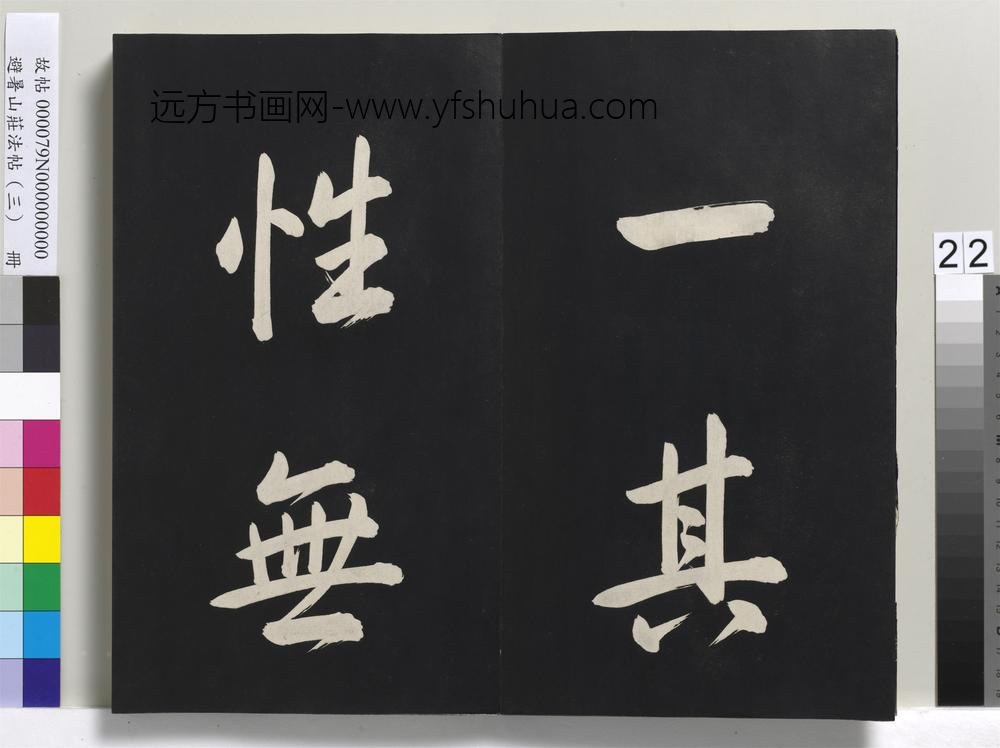 一其
性無
远方书画网-www.yfshuhua.com
故帖 000079N000000000
避暑山莊法帖（三） 冊
22